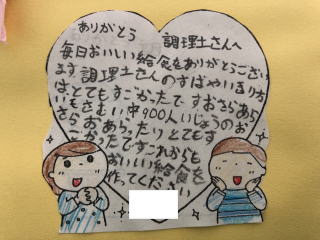 ありがとう 調理士さんへ
毎日おいしい給食をありがとうござい
ます。調理士さんのすばやいきり方
はとてもすごかったです。おさらあら
いもさむい中900人いじょうのお
さらをあらったりとてもす
ごかったです。これからも
おいしい給食を
作ってください